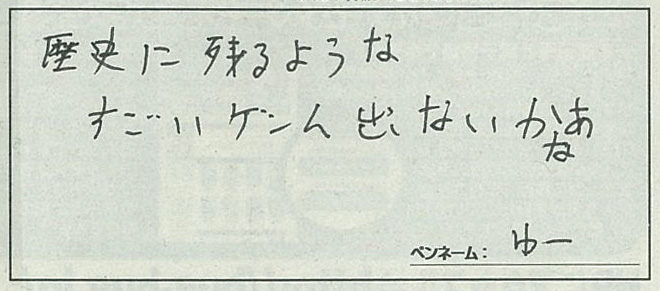 歴史に残るような
すごいゲンム出ないかなあ
ペンネーム： ゆー